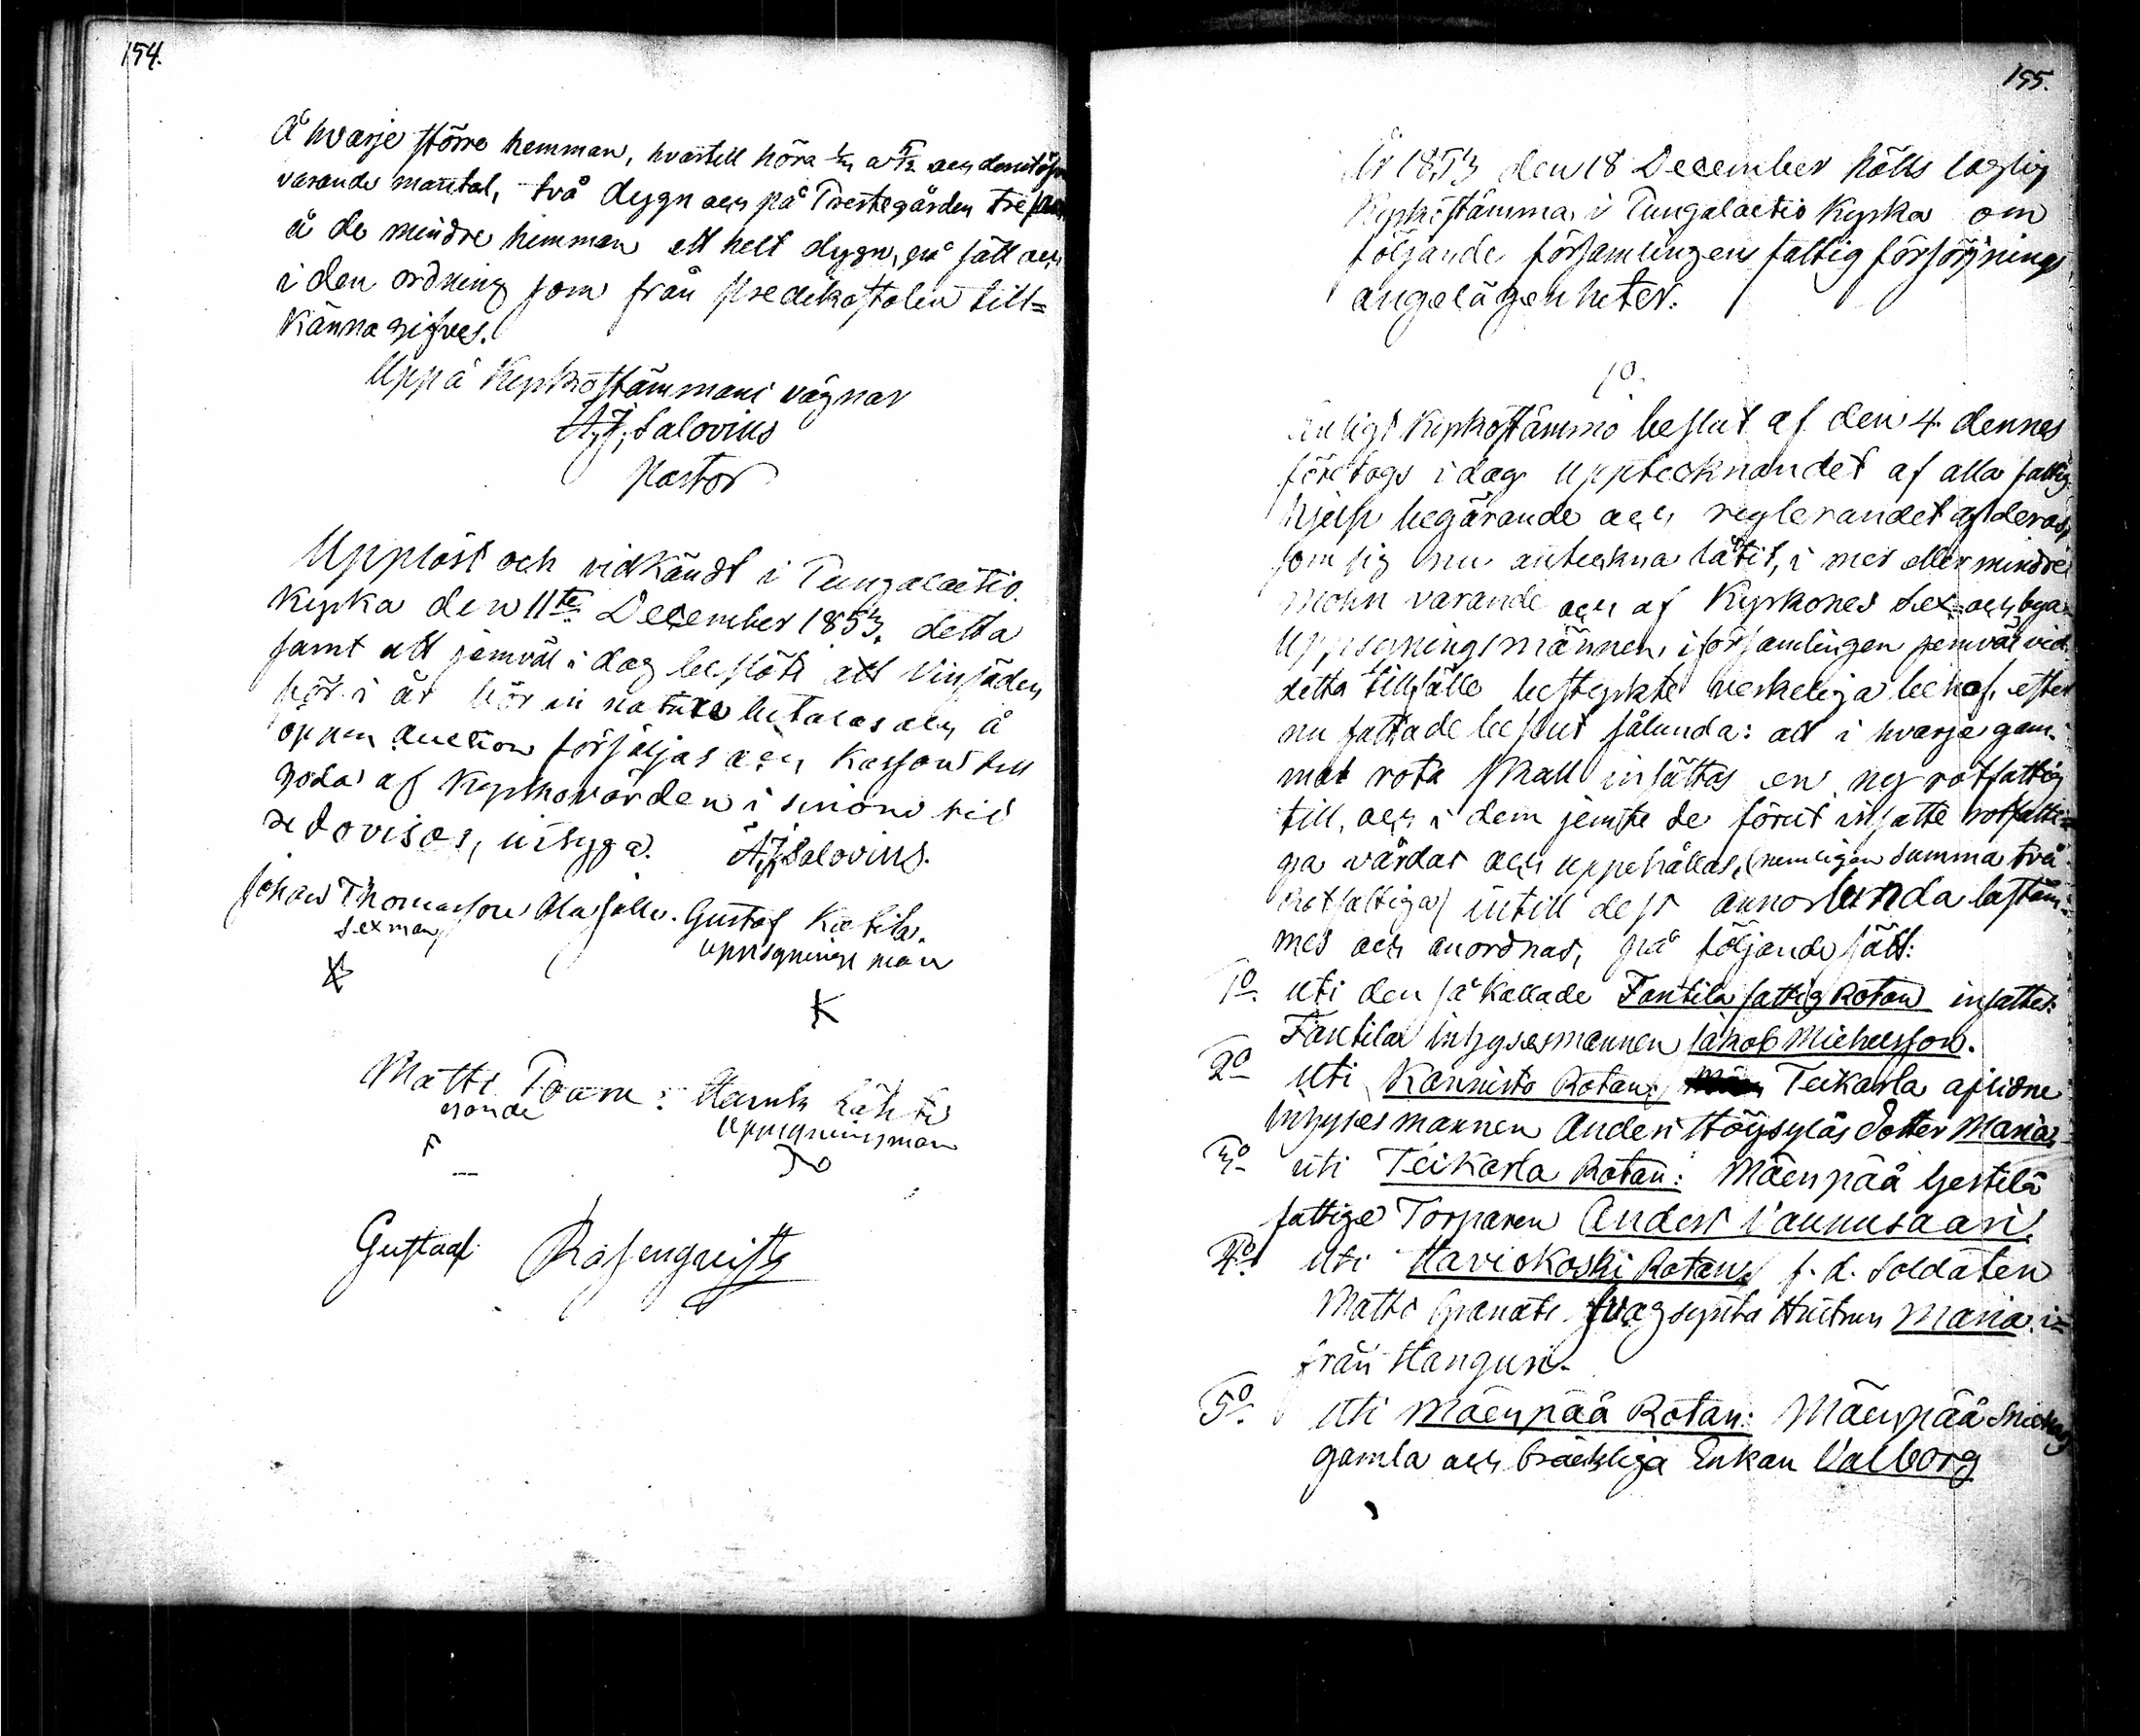 154.
Å hvarje större hemman, hvartill höra
varande mantal, två dygn och på Prestegården tre
å de mindre hemman ett helt dygn, på sätt och
i den ordning som från predikostolen till=
känna gifves.
Uppå Kyrkostämmans vägnar
A. J. Salovius
Pastor
Uppläst och vidkändt i Pungalaitio
Kyrka den 11te December 1853, detta
samt att jemväl i dag beslöts att Vinsäden
för i år bör in natura betalas och å
öppen auction försäljas och Kassan till
godo af Kyrkovärden i sinom tid
redovisas, intyga. A. J. Salovius.
Johan Thomasson Alasalle. Gustaf Katila.
Sexman uppsyningsman
K
Matti Toara: Henrik Lähtis
uppsyningsman
Gustaf Rosenqvist
155.
År 1853 den 18 December hölls laglig
Kyrkostämma i Pungalaitio Kyrka om
följande församlingens fattig försörjnings
angelägenheter.
1o.
Enligt Kyrkostämmo beslut af den 4. dennes
företogs i dag upptecknandet af alla fattig
hjelp begärande och reglerandet af deras,
som sig nu anteckna låtit, i mer eller mindre
mohn varande och af Kyrkones Sex- och bya
Uppsyningsmännen i församlingen jemväl vid
detta tillfälle bestyrkte verkeliga behof, efter
nu fattade beslut sålunda: att i hvarje gam-
mal rota skall insättas en ny rotfattig
till, och i dem jemte de förut insatte rotfatti=
ga vårdas och uppehållas, (nemligen summa två
Rotfattiga) intill dess annorlunda bestäm=
mes och anordnas, på följande sätt:
1o. uti den så kallade Fantila fattig Rotan insattes:
Fantila Inhysesmannen Jakob Michelsson.
2o Uti Kannisto Rotan: Teikarla aflidne
Inhysesmannen Anders Höysyläs Dotter Maria
3o uti Teikarla Rotan: Mäenpää Gestilä
fattige Torparen Anders Vannusaari.
4o. Uti Haviokoski Rotan: f. d. Soldaten
Matts Granats svagsynta Hustru Maria i=
från Hanguri.
5o. Uti Mäenpää Rotan: Mäenpää
gamla och bräckliga Enkan Valborg